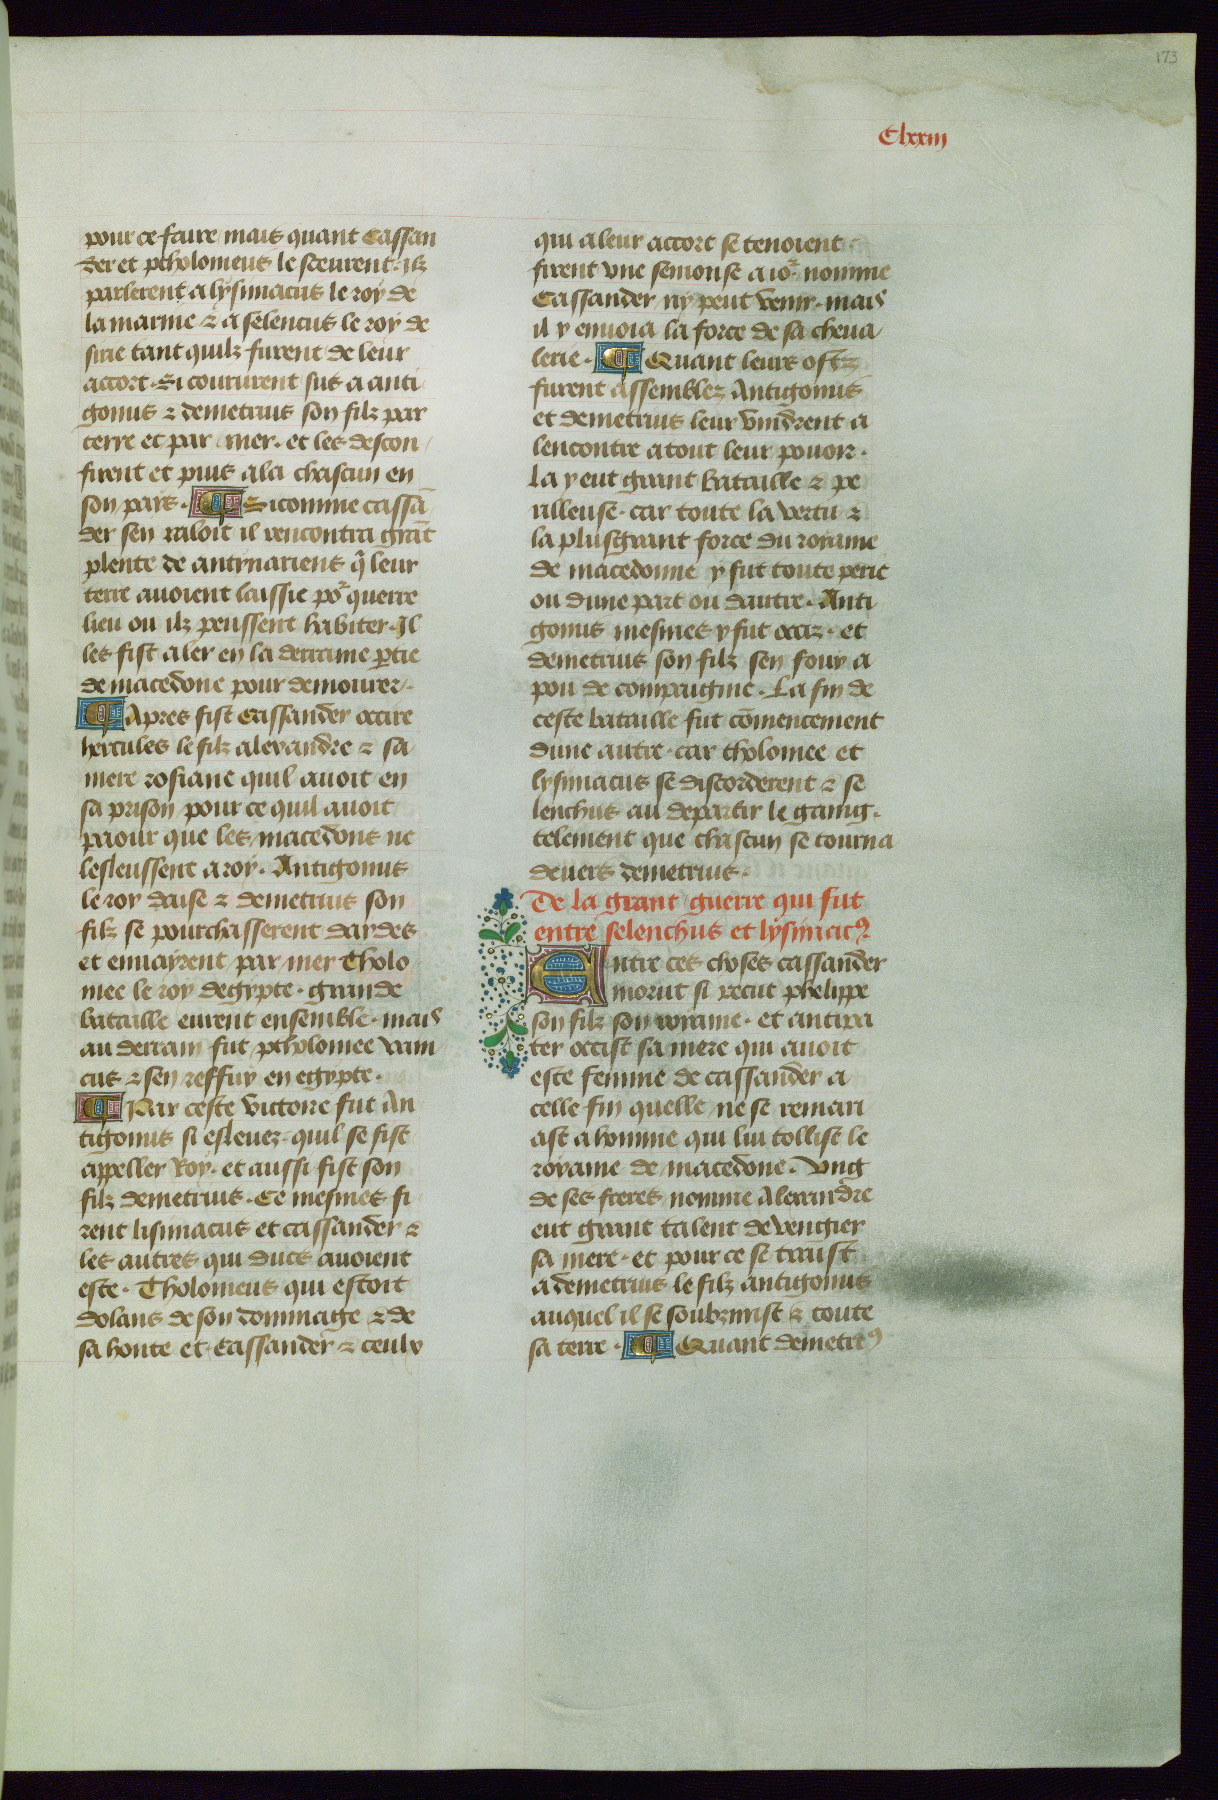 173
Clxxiii
pour ce faire mais quant Cassan
der et ptholomeus le sceurent. ilz
parlerent a lysimacus le roy de
la marine & a seleucus le roy de
sirie tant quilz furent de leur
accort. Si coururent sus a anti
gonus & demetrius son filz par
terre et par mer. et les descon
firent et puis ala chascun en
son pais. Sicomme cassā
der sen raloit il rencontra grāt
plente de antinariens q̄ leur
terre auoient laissie po᷑ querre
lieu ou ilz peussent habiter. Il
les fist aler en la derraine ꝑtie
de macedone pour demourer.
Apres fist Cassander occire
hercules le filz alexandre & sa
mere rosiane quil auoit en
sa prison pour ce quil auoit
paour que les macedons ne
lesleussent a roy. Antigonus
le roy daise & demetrius son
filz se pourchasserent daydes
et enuayrent par mer Tholo
mee le roy degypte. grande
bataille eurent ensemble. mais
au derrain fut ptholomee vain
cus & sen reffuy en egypte.
Par ceste victoire fut An
tigonus si esleuez. quil se fist
appeller Roy. et aussi fist son
filz demetrius. Ce mesmes fi
rent lisimacus et cassander &
les autres qui ducs auoient
este. Tholomeus qui estoit
dolans de son dommage & de
sa honte et Cassander & ceulx
qui a leur accort se tenoient
firent vne semonse a io᷑ nomme
Cassander ny peut venir. mais
il y enuoia la force de sa cheua
lerie. Quant leurs ostz
furent assemblez Antigonus
et demetrius leur vindrent a
lencontre a tout leur pouoir.
La y eut grant bataille & pe
rilleuse. car toute la vertu &
la plusgrant force du royame
de macedonne y fut toute perie
ou dune part ou dautre. Anti
gonus mesmes y fut occiz. et
demetrius son filz sen fouy a
pou de compaignie. La fin de
ceste bataille fut cōmencement
dune autre. car tholomee et
lysimacus se discorderent & se
lenchus au departir le gaing.
telement que chascun se tourna
deuers demetrius.
De la grant guerre qui fut
entre selenchus et lysimacꝰ.
Entre ces choses cassander
morut si recut phelippe
son filz son royame. et antipa
ter occist sa mere qui auoit
este femme de cassander a
celle fin quelle ne se remari
ast a homme qui lui tollist le
royame de macedone. Vng
de ses freres nomme Alexandre
eut grant talent de vengier
sa mere. et pour ce se traist
a demetrius le filz antigonus
auquel il se soubzmist & toute
sa terre. Quant demetriꝰ